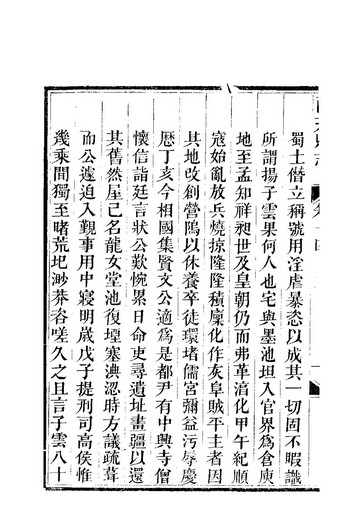 蜀土僭立稱號用淫虐暴恣以成其一切固不暇識
所謂揚子雲果何人也宅與墨池坦入官界爲倉庾
地至孟知祥昶世及皇朝仍而弗革淯化甲午紀順
寇始亂放兵燒掠隆隆積廩化作灰阜賊平主者因
其地改創營隖以休養卒徒環堵儒宮彌益污辱慶
厯丁亥今相國集賢文公適爲是都尹有中興寺僧
懷信詣廷言狀公歎惋累日命吏尋遺址畫疆以還
其舊然屋已名龍女堂池復堙塞淟涊時方議疏葺
而公遽迫入覲事用中寢明歲戊子提刑司高侯惟
幾乘間獨至睹荒圯渺莽咨嗟久之且言子雲八十